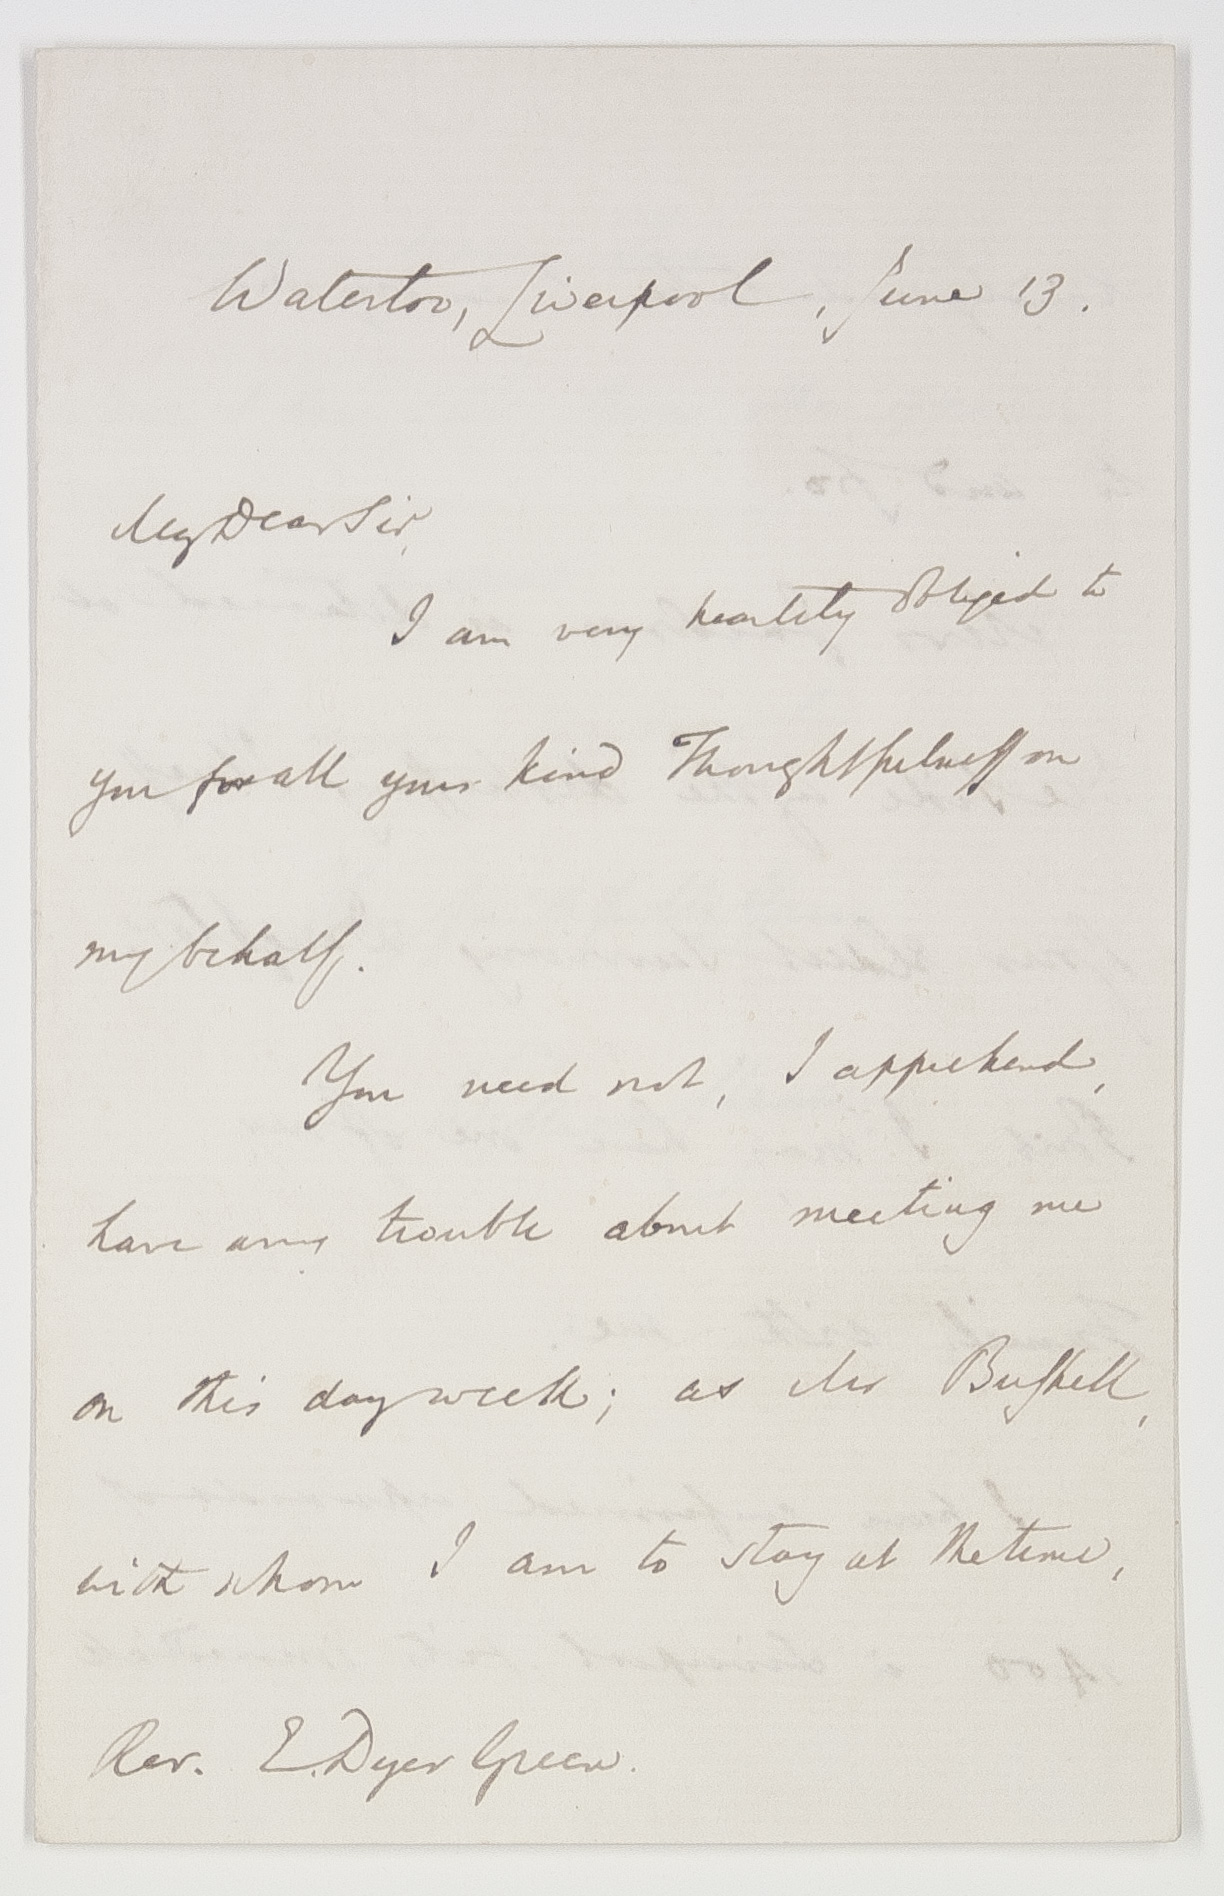 Waterloo, Liverpool, June 13.
My Dear Sir,
I am very heartily obliged to
you for all your kind Thoughtfulness on
my behalf.
You need not, I apprehend,
have any trouble about meeting me
on this day week; as Mr Bushell,
with whom I am to stay at the time,
Rev. E. Dyer Green.